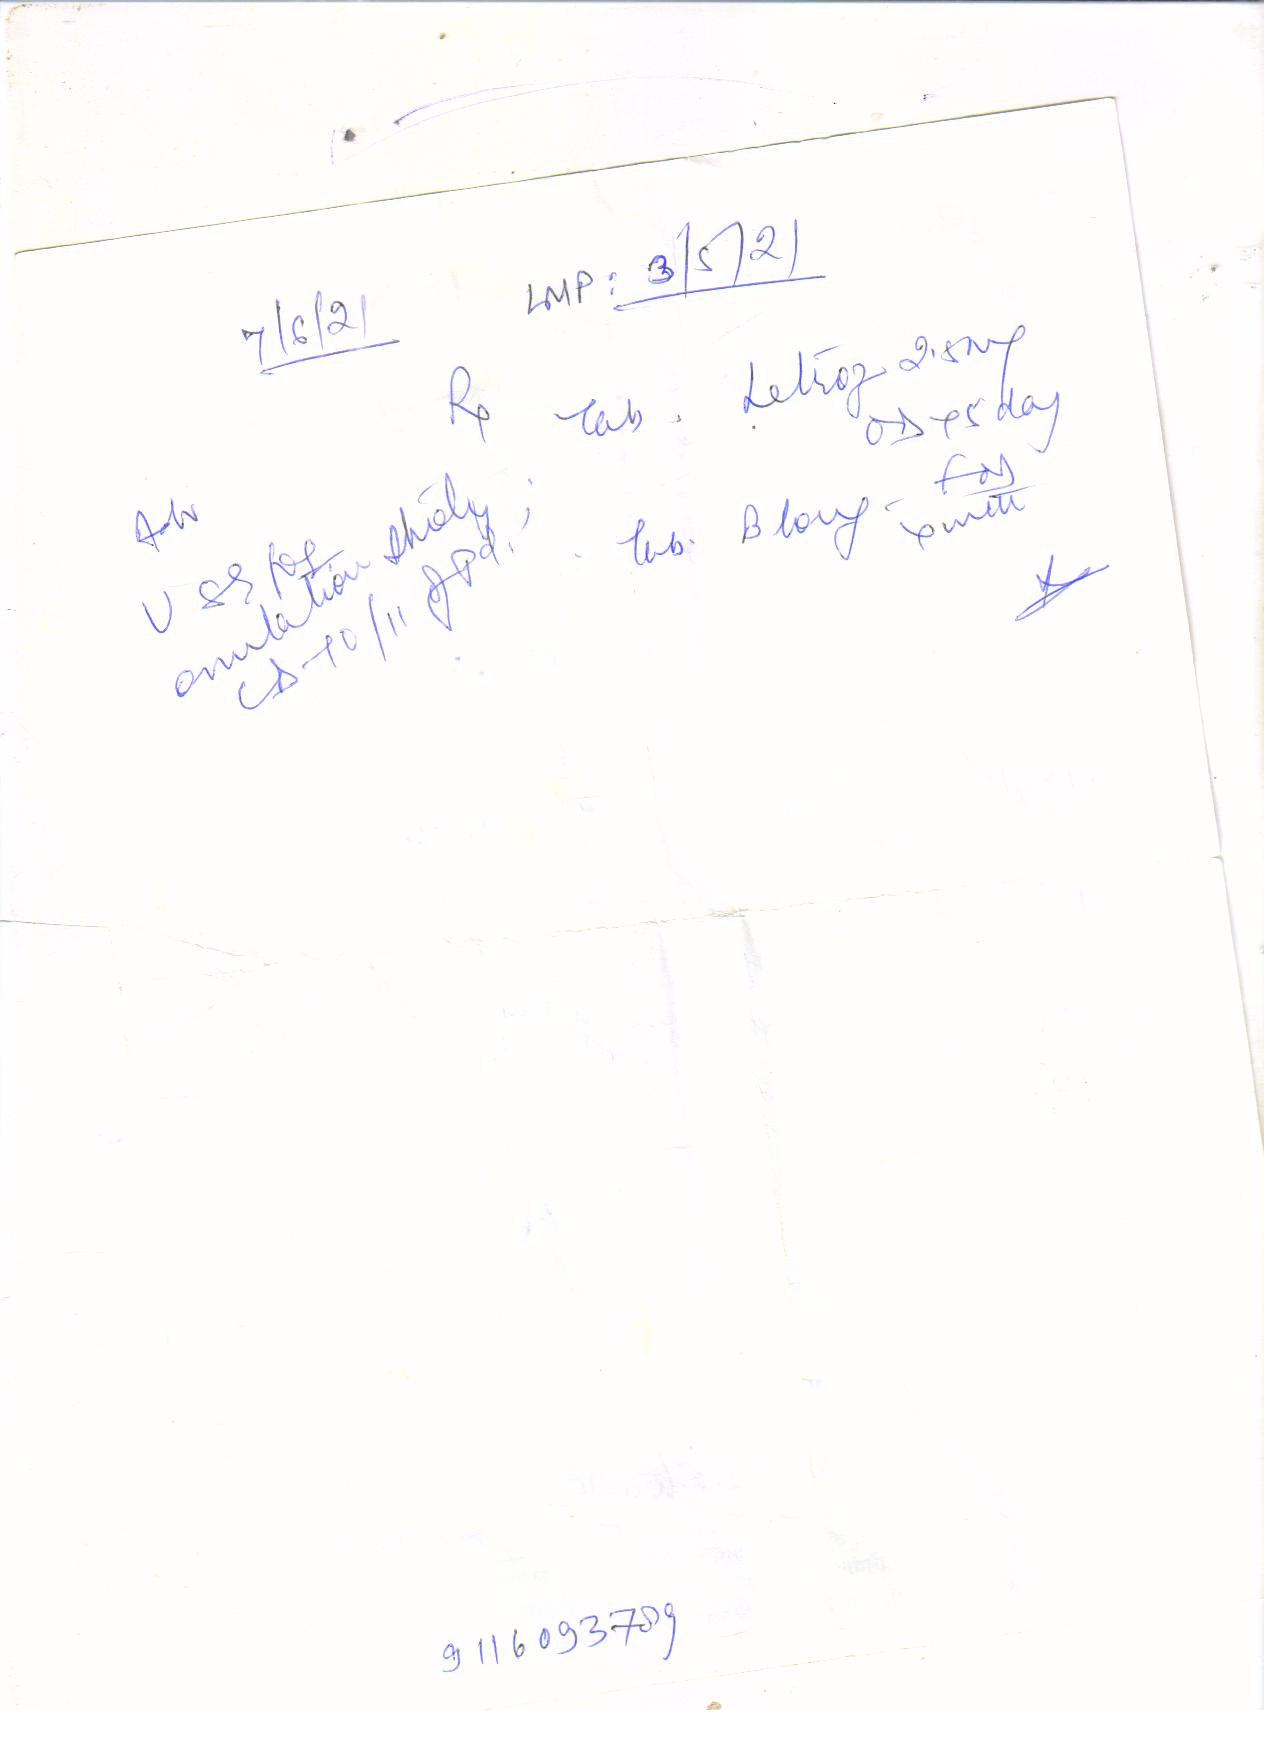 7/5/21 LMP: 3/5/21
Rx Tab. Letroz 2.5mg
OD x 5 day
Tab. B long -
Adv
USG for
ovulation study
CD 10/11 of Pd.
9116093789